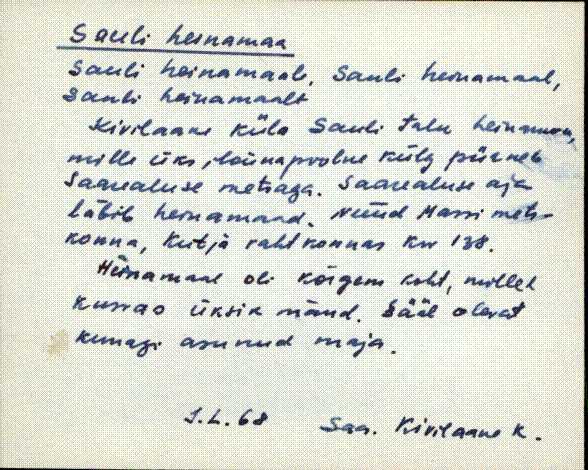 Sauli heinamaa
Sauli heinamaale, Sauli heinamaal,
Sauli heinamaalt
Kivilaane küla Sauli talu heinamaa,
mille üks, lõunapoolne külg piirneb
Saarealuse metsaga. Saarealuse oja
läbib heinamaad. Nüüd Massi mets-
konna, Kutja vahtkonnas kv 138.
Heinamaal oli kõrgem koht, millel
kasvab üksik mänd. Sääl olevat
kunagi asunud maja.
J.L. 68 Saa. Kivilaane k.